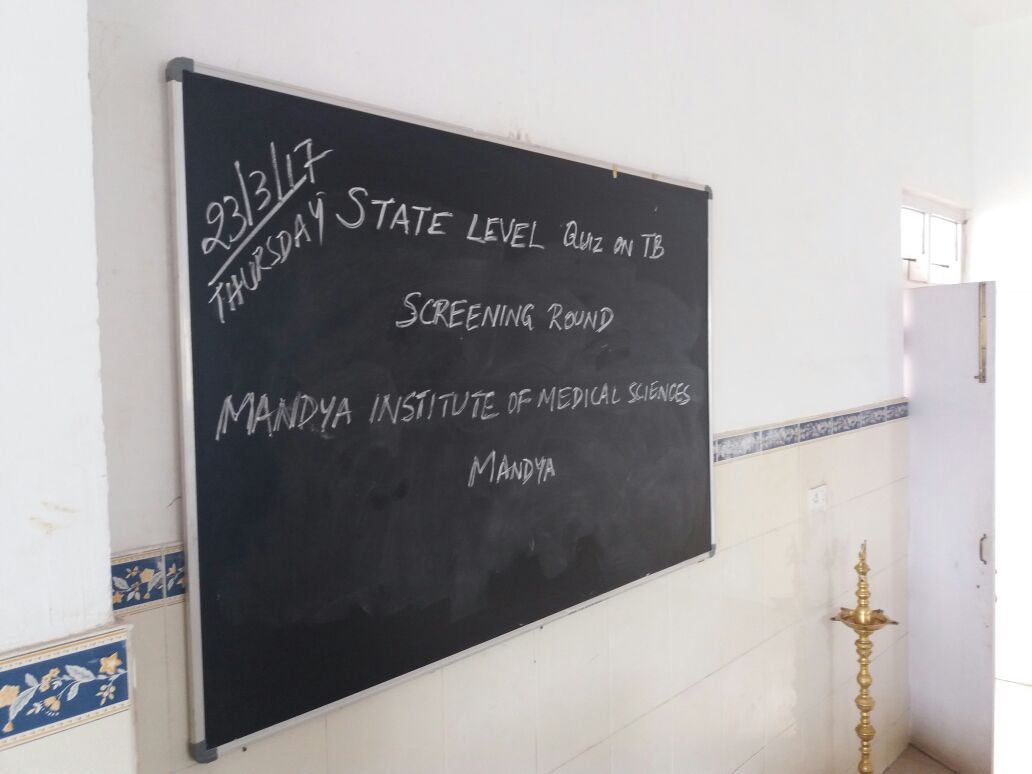 23/3/17
THURSDAY
STATE LEVEL QUIZ ON TB
SCREENING ROUND
MANDYA INSTITUTE OF MEDICAL SCIENCES
MANDYA